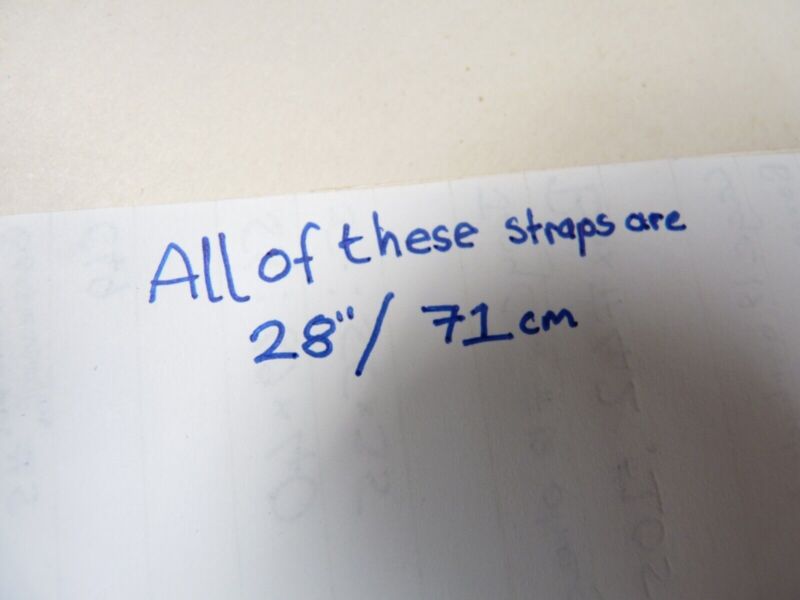 All of these straps are
28"/ 71 cm